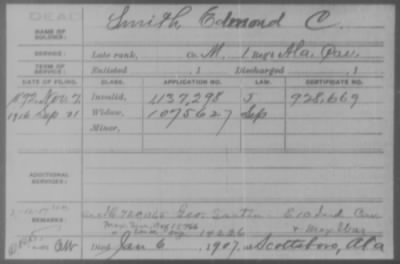 DEAD
NAME OF SOLDIER: Smith Edmond C.
SERVICE: Late rank, Co. M, 1 Reg't Ala. Cav.
TERM OF SERVICE: Enlisted 1 Discharged 1
DATE OF FILING. CLASS. APPLICATION NO. LAW. CERTIFICATE NO.
1892 Nov. 7 Invalid, 1137,298 J 928,669
1916 Sep 21 Widow, 1075627 Sep
Minor,
ADDITIONAL SERVICES:
REMARKS:
Mex. War
Died Jan 6, 1907, at Scottsboro, Ala